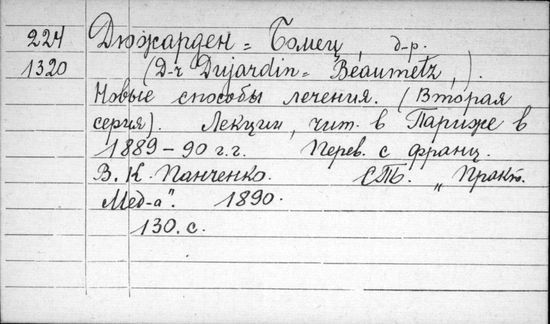 224 Дюжарден = Бомец, д-р.
1320 (D-r Dujardin = Beaumetz,).
Новые способы лечения. (Вторая
серия). Лекции, чит. в Париже в
1889-90 г.г. Перев. с франц.
В. К. Панченко. СПб. „Практ.
Мед-а". 1890.
130. с.